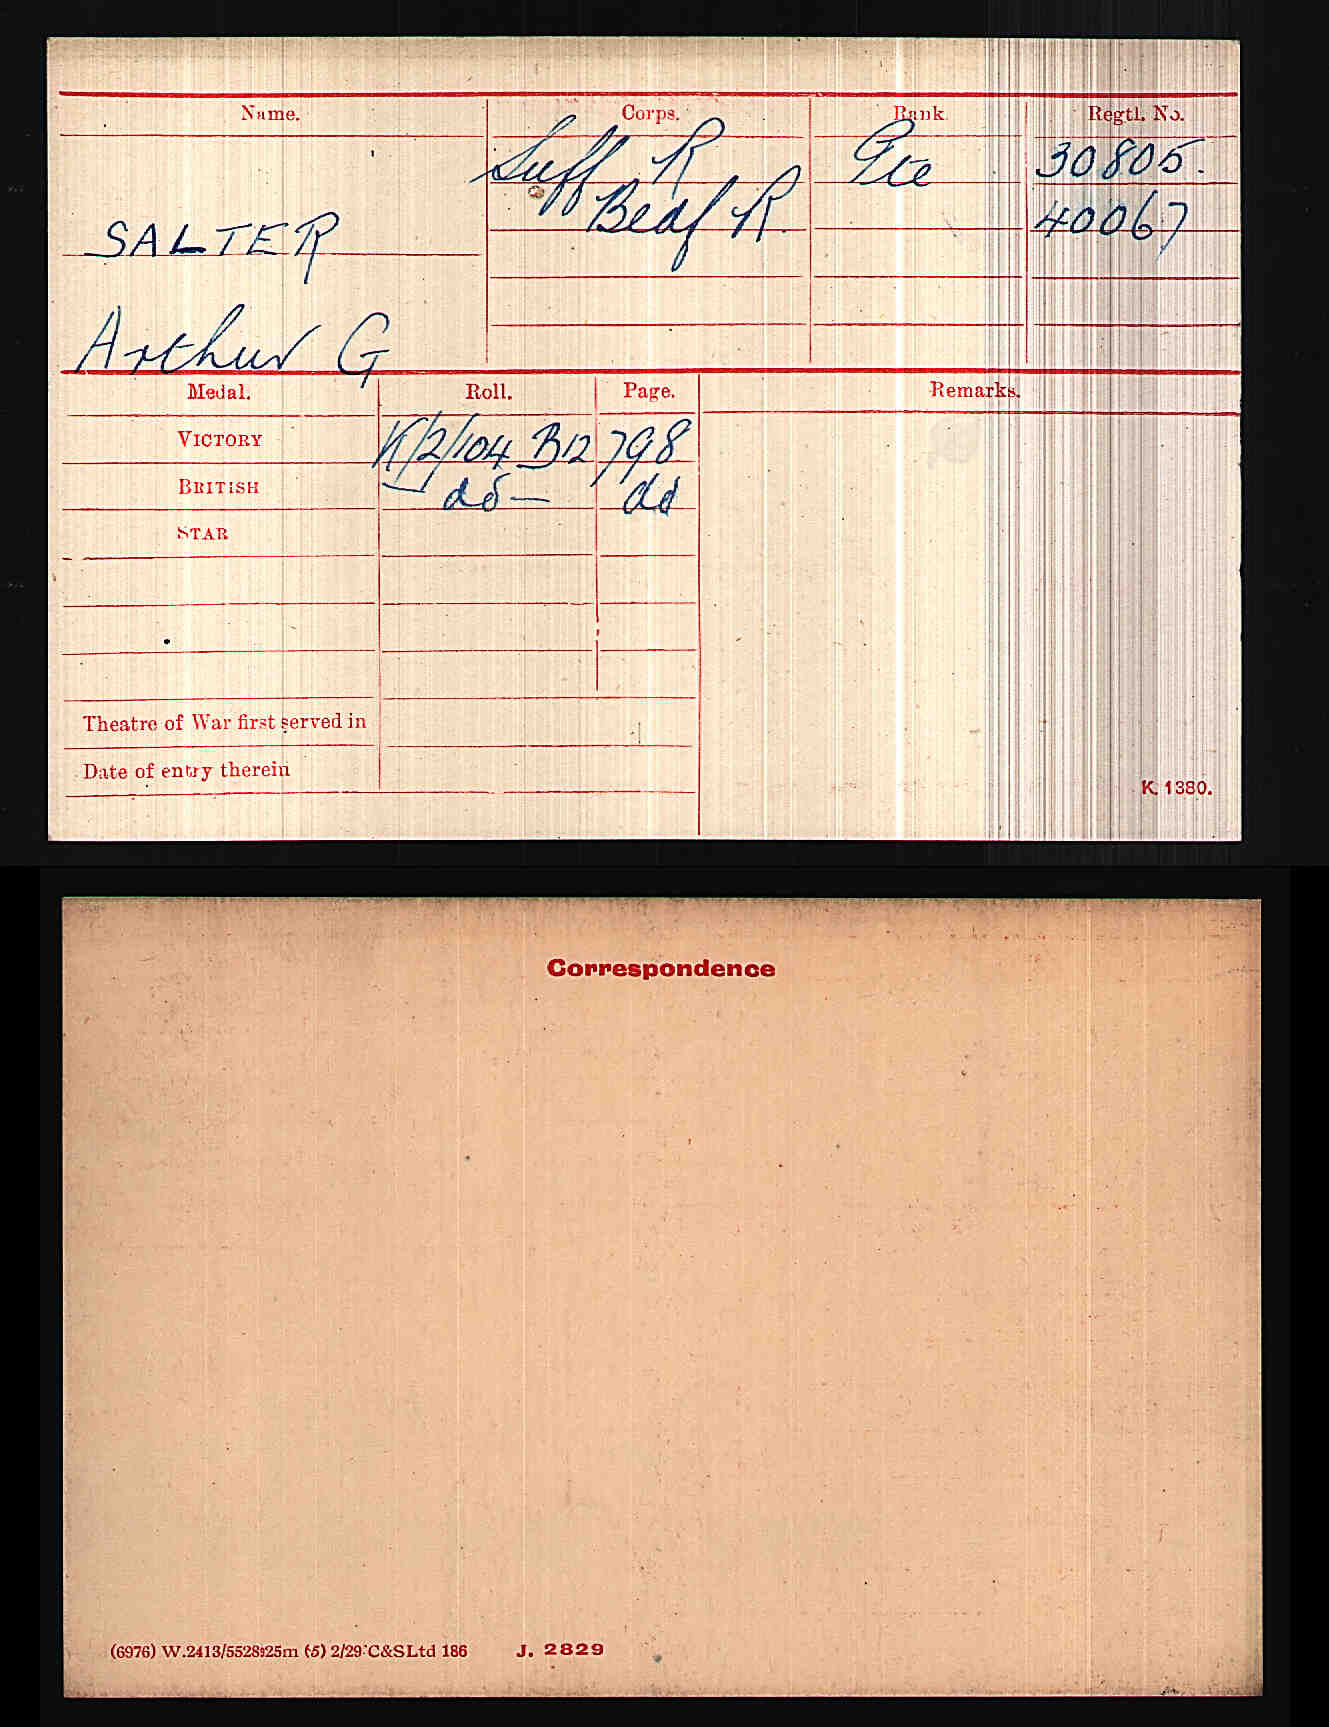 Name. Corps. Rank. Regtl. No.
Suff. R Pte 30805.
Bedf R. 40067
SALTER
Arthur G
Medal. Roll. Page. Remarks.
VICTORY K/2/104 B12 798
BRITISH — do — do
STAR
Theatre of War first served in
Date of entry therein
K. 1380.
Correspondence
(6976) W.2413/5528 25m (5) 2/29 C&S Ltd 186 J. 2829